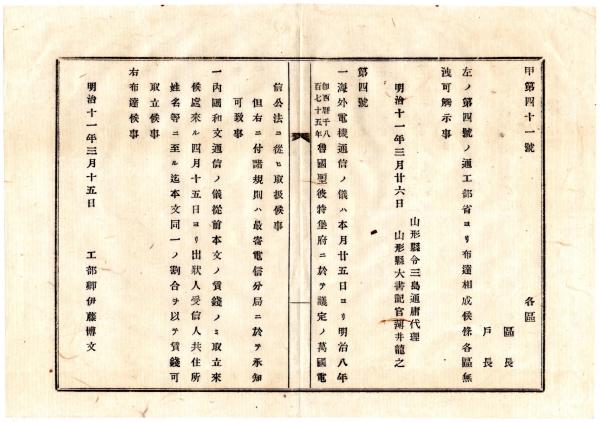 甲第四十一號
各區
區長
戶長
左ノ第四號ノ通工部省ヨリ布達相成候條各區無
洩可觸示事
明治十一年三月廿六日
山形縣令三島通庸代理
山形縣大書記官薄井龍之
第四號
一海外電機通信ノ儀ハ本月廿五日ヨリ明治八年
即西曆千八百七十五年魯國聖彼特堡府ニ於テ議定ノ萬國電
信公法ニ從ヒ取扱候事
但右ニ付諸規則ハ最寄電信分局ニ於テ承知
可致事
一內國和文通信ノ儀從前本文ノ賃錢ノミ取立來
候處來ル四月十五日ヨリ出狀人受信人共住所
姓名等ニ至ル迄本文同一ノ割合ヲ以テ賃錢可
取立候事
右布達候事
明治十一年三月十五日
工部卿伊藤博文